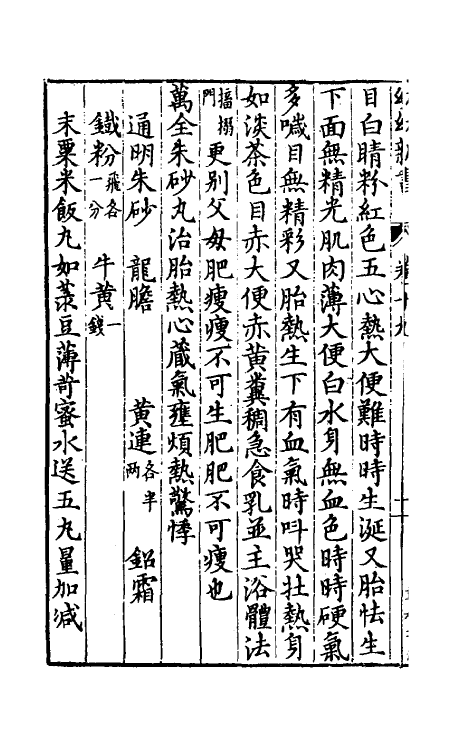 幼幼新書 卷十九
目白睛粉紅色五心熱大便難時時生涎又胎怯生
下面無精光肌肉薄大便白水身無血色時時硬氣
多噦目無精彩又胎熱生下有血氣時叫哭壮熱身
如淡茶色目赤大便赤黃糞稠急食乳並主浴體法
搐搦門 更別父母肥瘦瘦不可生肥肥不可瘦也
萬全朱砂丸治胎熱心蔵氣壅煩熱驚悸
通明朱砂 龍膽 黃連各半兩 鉛霜
鐵粉飛各一分 牛黃一錢
末粟米飯丸如菉豆薄荷蜜水送五丸量加減